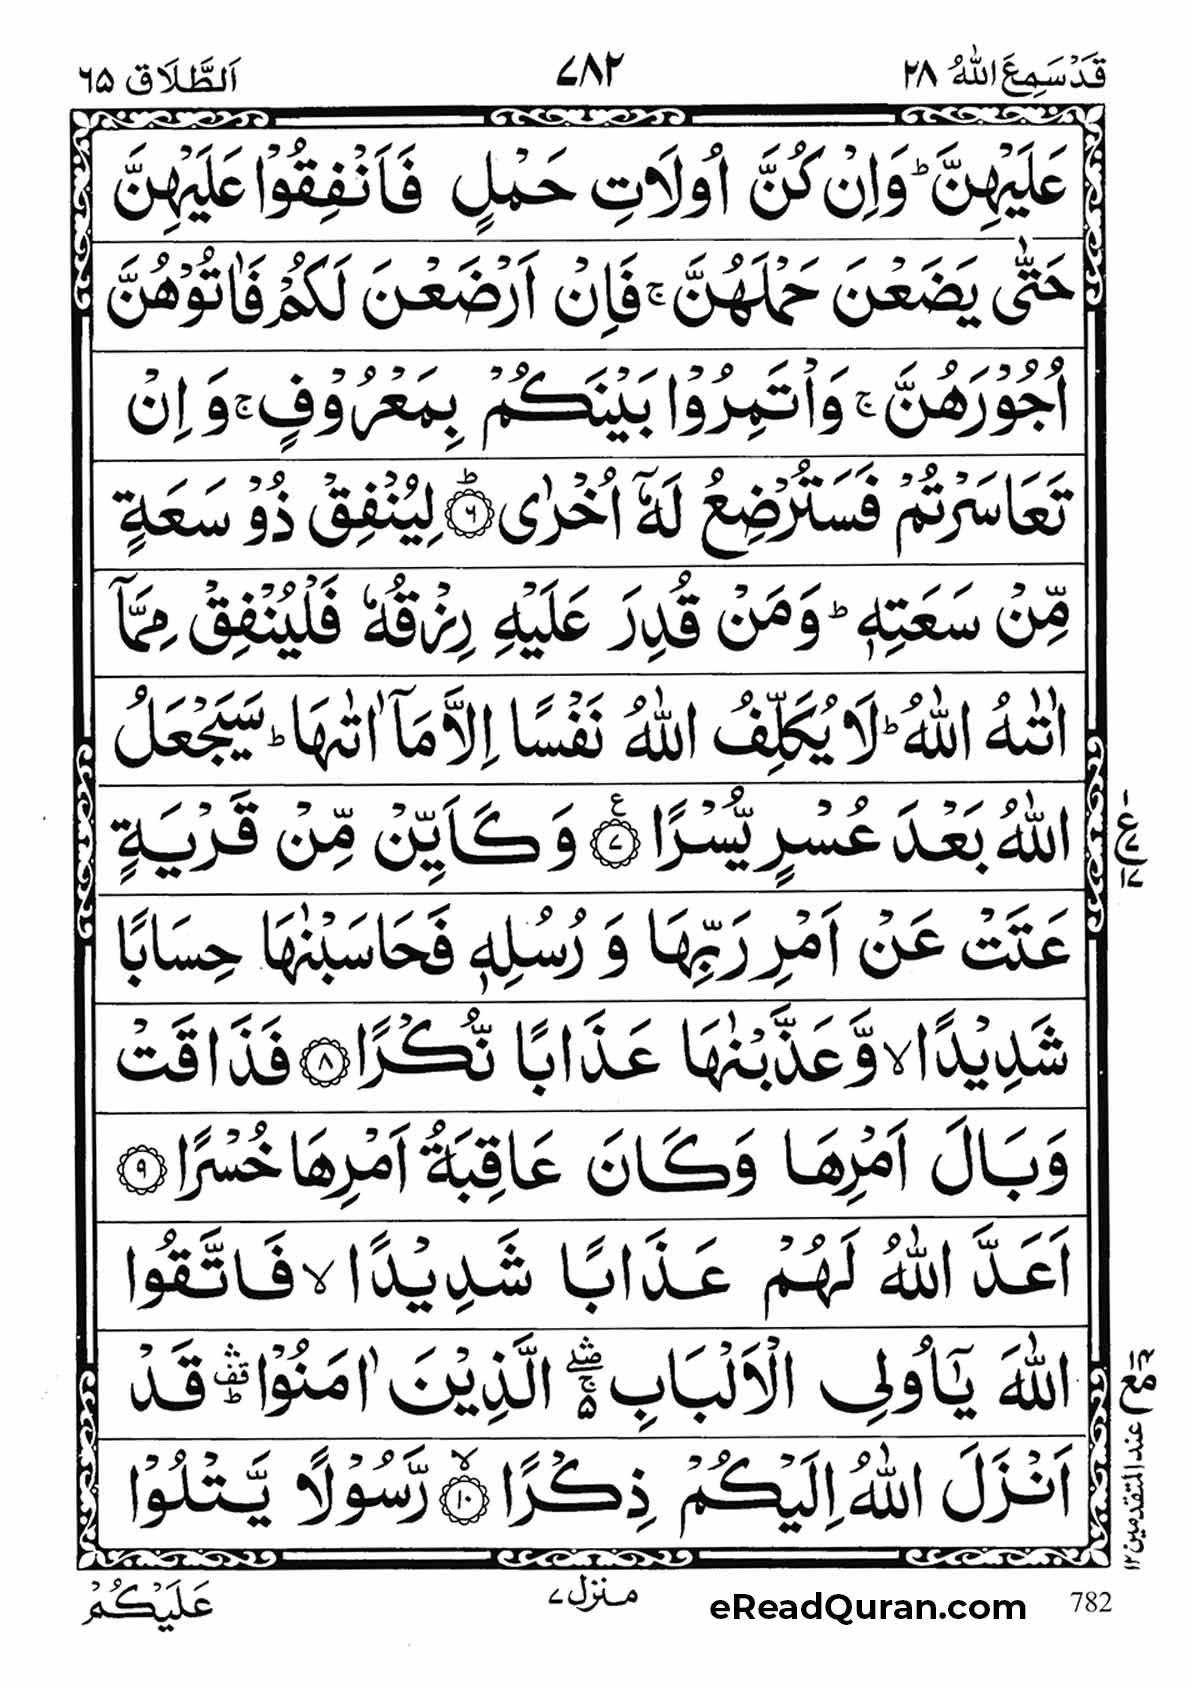 قَدۡ سَمِعَ اللّٰهُ ۲۸ ۷۸۲ اَلطَّلَاق ۶۵
عَلَيۡهِنَّ ؕ وَاِنۡ كُنَّ اُولَاتِ حَمۡلٍ فَاَنۡفِقُوۡا عَلَيۡهِنَّ
حَتّٰى يَضَعۡنَ حَمۡلَهُنَّ ۚ فَاِنۡ اَرۡضَعۡنَ لَكُمۡ فَاٰتُوۡهُنَّ
اُجُوۡرَهُنَّ ۚ وَاۡتَمِرُوۡا بَيۡنَكُمۡ بِمَعۡرُوۡفٍ ۚ وَاِنۡ
تَعَاسَرۡتُمۡ فَسَتُرۡضِعُ لَهٗۤ اُخۡرٰى ؕ‏﴿۶﴾ لِيُنۡفِقۡ ذُوۡ سَعَةٍ
مِّنۡ سَعَتِهٖ ؕ وَمَنۡ قُدِرَ عَلَيۡهِ رِزۡقُهٗ فَلۡيُنۡفِقۡ مِمَّاۤ
اٰتٰٮهُ اللّٰهُ ؕ لَا يُكَلِّفُ اللّٰهُ نَفۡسًا اِلَّا مَاۤ اٰتٰٮهَا ؕ سَيَجۡعَلُ
اللّٰهُ بَعۡدَ عُسۡرٍ يُّسۡرًا ﴿۷﴾ وَكَاَيِّنۡ مِّنۡ قَرۡيَةٍ
عَتَتۡ عَنۡ اَمۡرِ رَبِّهَا وَرُسُلِهٖ فَحَاسَبۡنٰهَا حِسَابًا
شَدِيۡدًا ۙ وَّعَذَّبۡنٰهَا عَذَابًا نُّكۡرًا ﴿۸﴾ فَذَاقَتۡ
وَبَالَ اَمۡرِهَا وَكَانَ عَاقِبَةُ اَمۡرِهَا خُسۡرًا ﴿۹﴾
اَعَدَّ اللّٰهُ لَهُمۡ عَذَابًا شَدِيۡدًا ۙ فَاتَّقُوا
اللّٰهَ يٰۤاُولِى الۡاَلۡبَابِ ۛۖ ۚ ۵ الَّذِيۡنَ اٰمَنُوۡا ؕ ۛ قف قَدۡ
اَنۡزَلَ اللّٰهُ اِلَيۡكُمۡ ذِكۡرًا ۙ‏﴿۱۰﴾ رَّسُوۡلًا يَّتۡلُوۡا
عند المتقدمين ۱۲
عَلَيۡكُمۡ منزل ۷ eReadQuran.com 782